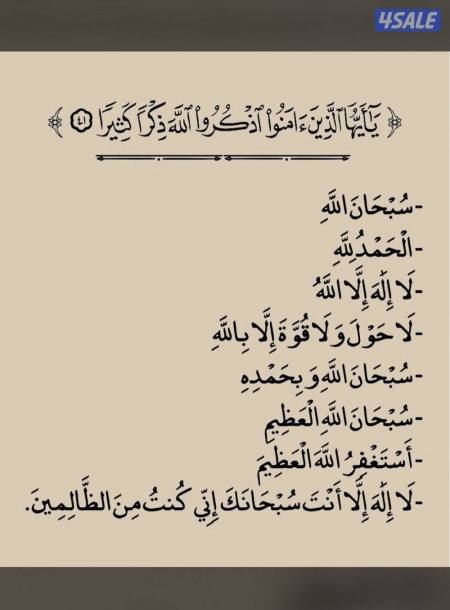 4SALE
﴿ يَٰٓأَيُّهَا ٱلَّذِينَ ءَامَنُوا۟ ٱذْكُرُوا۟ ٱللَّهَ ذِكْرًا كَثِيرًا ٤١ ﴾
-سُبْحَانَ اللَّهِ
-الْحَمْدُ لِلَّهِ
-لَا إِلَٰهَ إِلَّا اللَّهُ
-لَا حَوْلَ وَلَا قُوَّةَ إِلَّا بِاللَّهِ
-سُبْحَانَ اللَّهِ وَبِحَمْدِهِ
-سُبْحَانَ اللَّهِ الْعَظِيمِ
-أَسْتَغْفِرُ اللَّهَ الْعَظِيمَ
-لَا إِلَٰهَ إِلَّا أَنْتَ سُبْحَانَكَ إِنِّي كُنتُ مِنَ الظَّالِمِينَ.